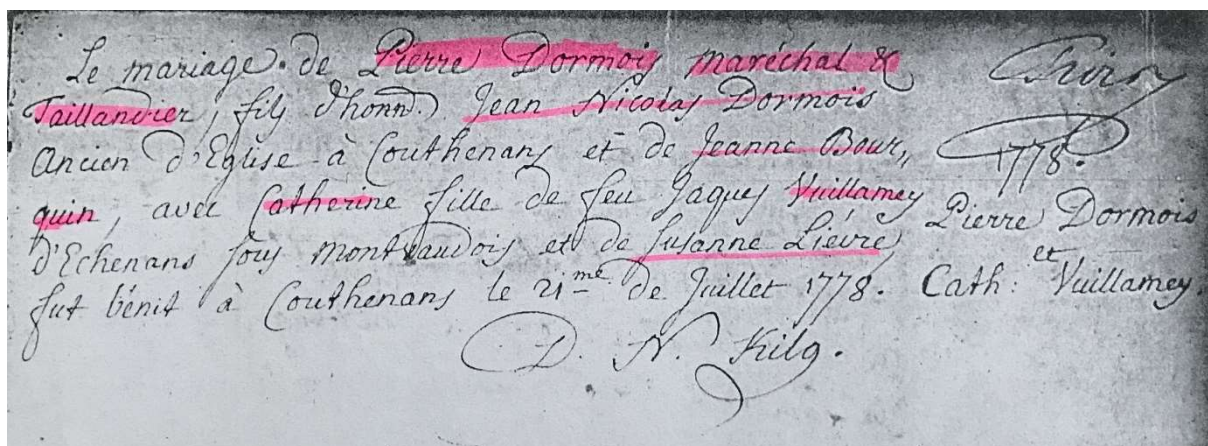 Le mariage de Pierre Dormois maréchal &
Taillandier, fils d'honn. Jean Nicolas Dormois
Ancien d'Eglise à Couthenans et de Jeanne Bour„
quin, avec Catherine fille de feu Jaques Vuillamey
d'Echenans sous montvaudois et de Susanne Lièvre
fut bénit à Couthenans le 21me de Juillet 1778.
D. N. Kilg.
1778.
Pierre Dormois
et
Cath: Vuillamey.